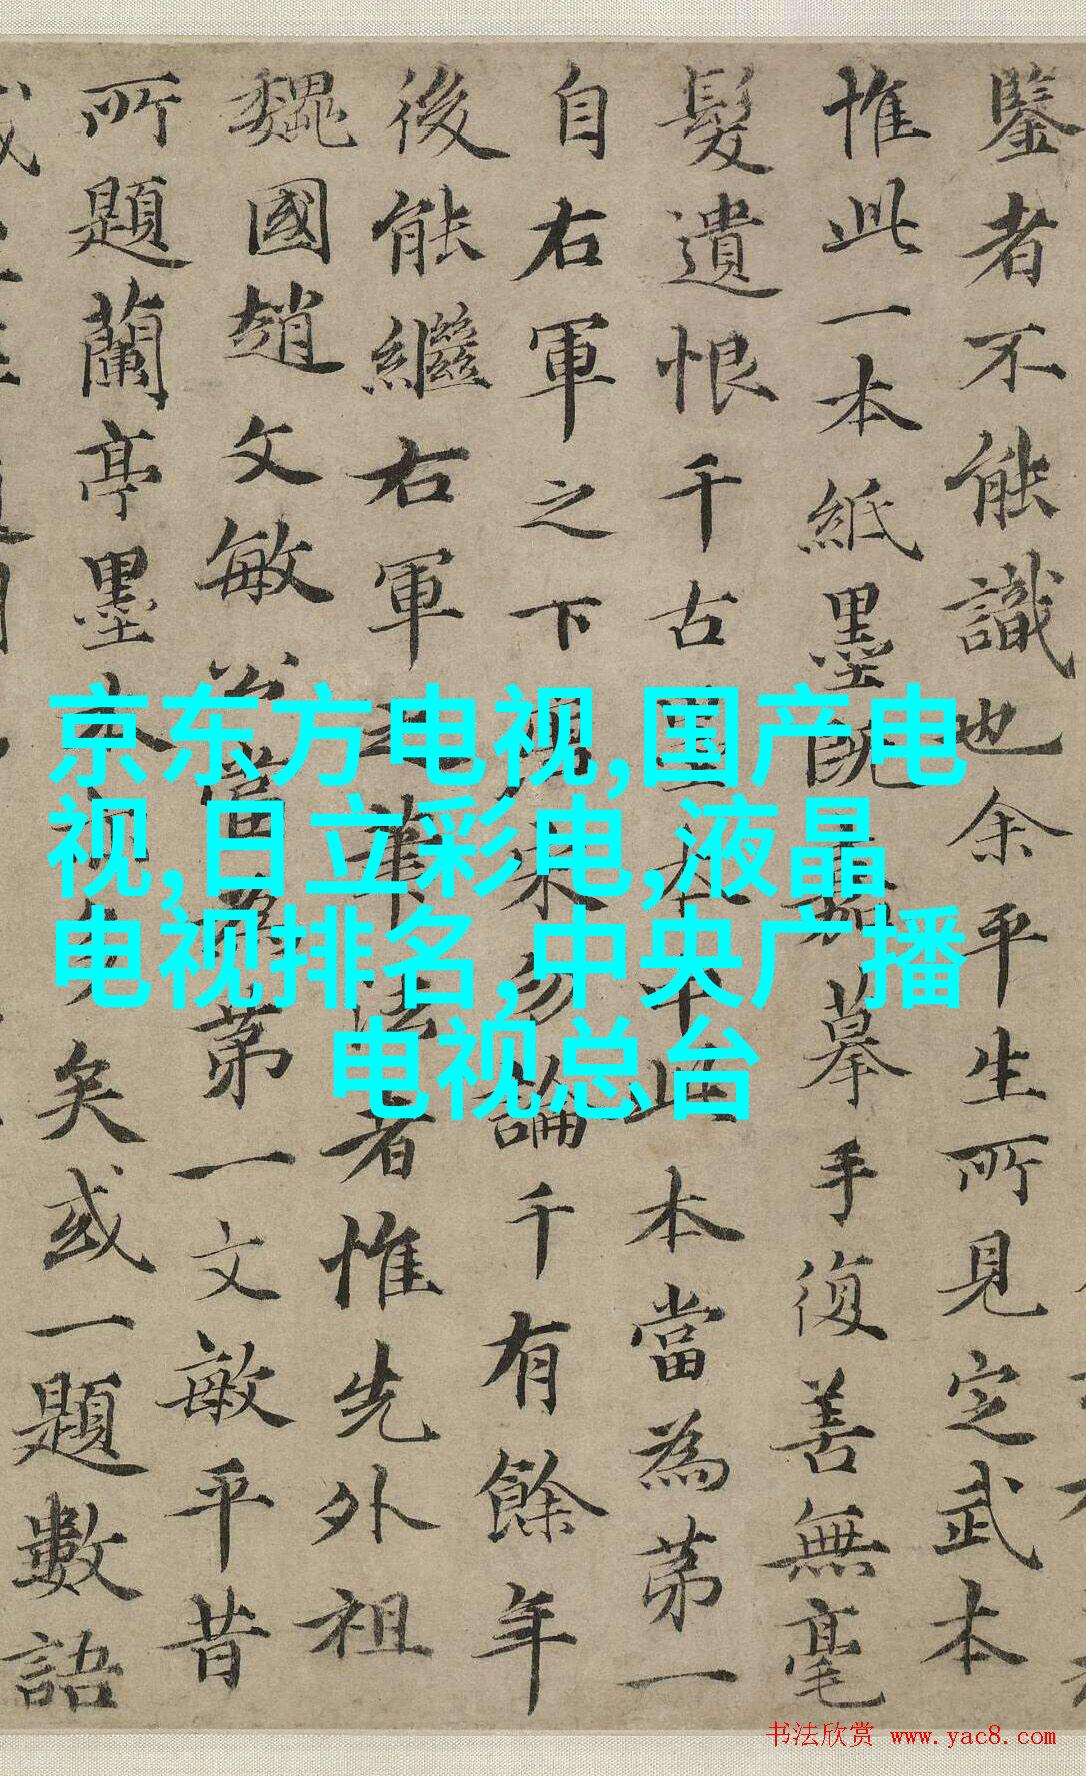 鑒者不能識也余平生所見定武本
惟此一本紙墨既嘉摹手復善無毫
髮遺恨千古墨本中此本當為第一
自右軍之下勿論千有餘年
後能繼右軍之筆法者惟先外祖
魏國趙文敏公當為第一文敏平昔
所題蘭亭墨本矣或一題數語
京东方电视,国产电
视,日立彩电,液晶
电视排名,中央广播
电视总台
书法欣赏 www.yac8.com